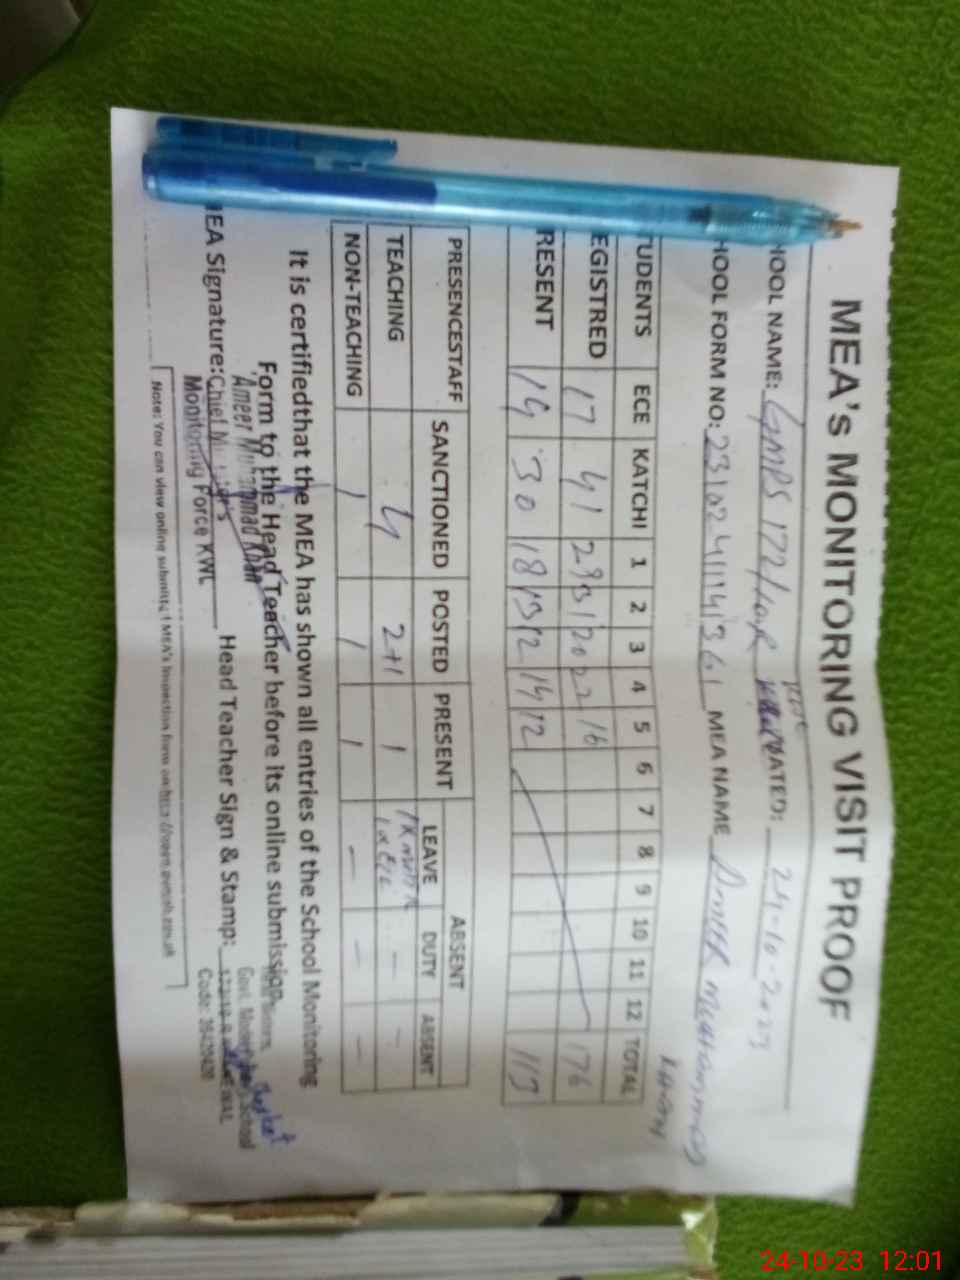 MEA's MONITORING VISIT PROOF
HOOL NAME: GMPS 172/10R DATED: 24-10-2023
HOOL FORM NO: MEA NAME AMEER MUHAMMAD
KHAN
TUDENTS ECE KATCHI 1 2 3 4 5 6 7 8 9 10 11 12 TOTAL
EGISTRED 17 41 29 31 20 22 16 176
RESENT 14 30 18 19 12 14 12 119
PRESENCESTAFF SANCTIONED POSTED PRESENT ABSENT
LEAVE DUTY ABSENT
TEACHING 4 2+1 1 - -
NON-TEACHING 1 1 1 - - -
It is certifiedthat the MEA has shown all entries of the School Monitoring
Form to the Head Teacher before its online submission.
Ameer Muhammad Khan
EA Signature: Chief Minister's Head Teacher Sign & Stamp:
Monitoring Force KWL
Govt. Model School
Code:
Note: You can view online submitted MEA's Inspection form on
24-10-23 12:01